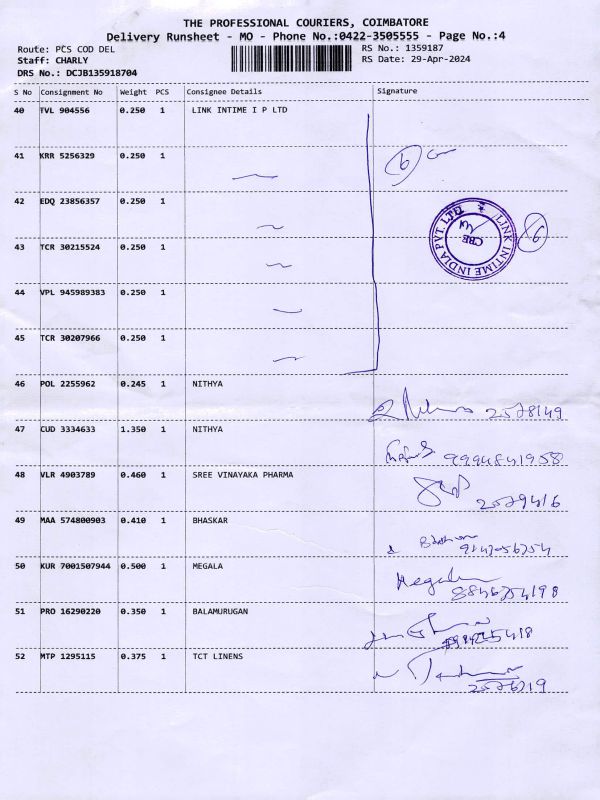 THE PROFESSIONAL COURIERS, COIMBATORE
Delivery Runsheet - MO - Phone No.:0422-3505555 - Page No.:4
Route: PCS COD DEL RS No.: 1359187
Staff: CHARLY RS Date: 29-Apr-2024
DRS No.: DCJB135918704
S No Consignment No Weight PCS Consignee Details Signature
40 TVL 904556 0.250 1 LINK INTIME I P LTD
41 KRR 5256329 0.250 1
6
42 EDQ 23856357 0.250 1
LINK INTIME INDIA PVT. LTD
CBE
6
43 TCR 30215524 0.250 1
44 VPL 945989383 0.250 1
45 TCR 30207966 0.250 1
46 POL 2255962 0.245 1 NITHYA
2578149
47 CUD 3334633 1.350 1 NITHYA
9994841958
48 VLR 4903789 0.460 1 SREE VINAYAKA PHARMA
2579416
49 MAA 574800903 0.410 1 BHASKAR
50 KUR 7001507944 0.500 1 MEGALA
Megala
51 PRO 16290220 0.350 1 BALAMURUGAN
52 MTP 1295115 0.375 1 TCT LINENS